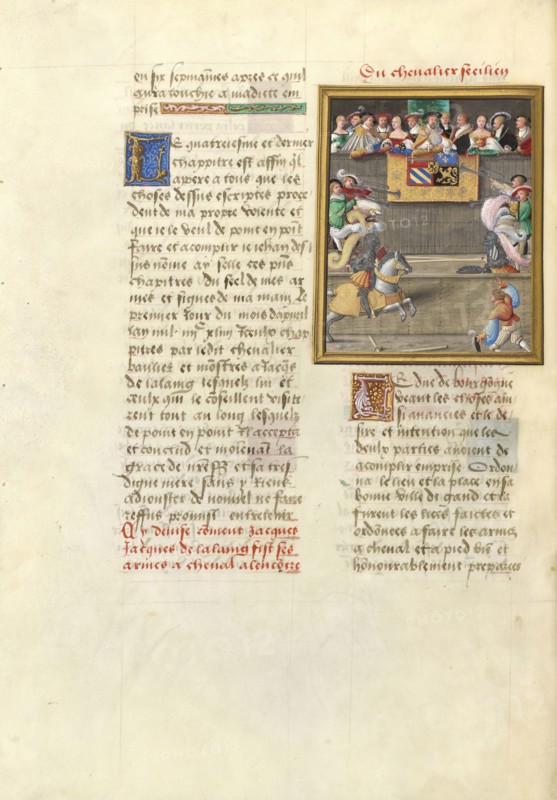 en six sepmaines apres ce quil
aura touchie a madicte em
prise
Le quatreiesme et dernier
chappitre est affin ql
apere a tous que les
choses dessus escriptes proce
dent de ma propre volente et
que ie le veul de point en poit
faire et acomplir ie iehan des
sus nome ay selle ces pns
chapitres du seel de mes ar
mes et signes de ma main Le
premier iour du mois dapuril
lan mil
pitres par ledit chevalier
baulies et monstres a Jaqs
de lalaing lesquelz lui et
ceulx qui le coseillent visite
rent tout au long lesquelz
de point en point Il accepta
et conclud et moiena la
grace de et sa tres
digne mere sans y Riens
adiouster de nouuel ne faire
reffus promist entretenir
Cy deuise coment Jacques
Jacques de lalaing fist ses
armes a cheval alencotre
Du chevalier secilien
Le duc de bourgogne
veant les choses ain
si auancies et le de
sire et intention que les
deux parties auoient de
acomplir emprise Ordon
na le lieu et la place en sa
bonne ville de gand et la
furent les lices faictes et
ordonees a faire les armes
a cheval et a pied bien et
honnourablement preparees